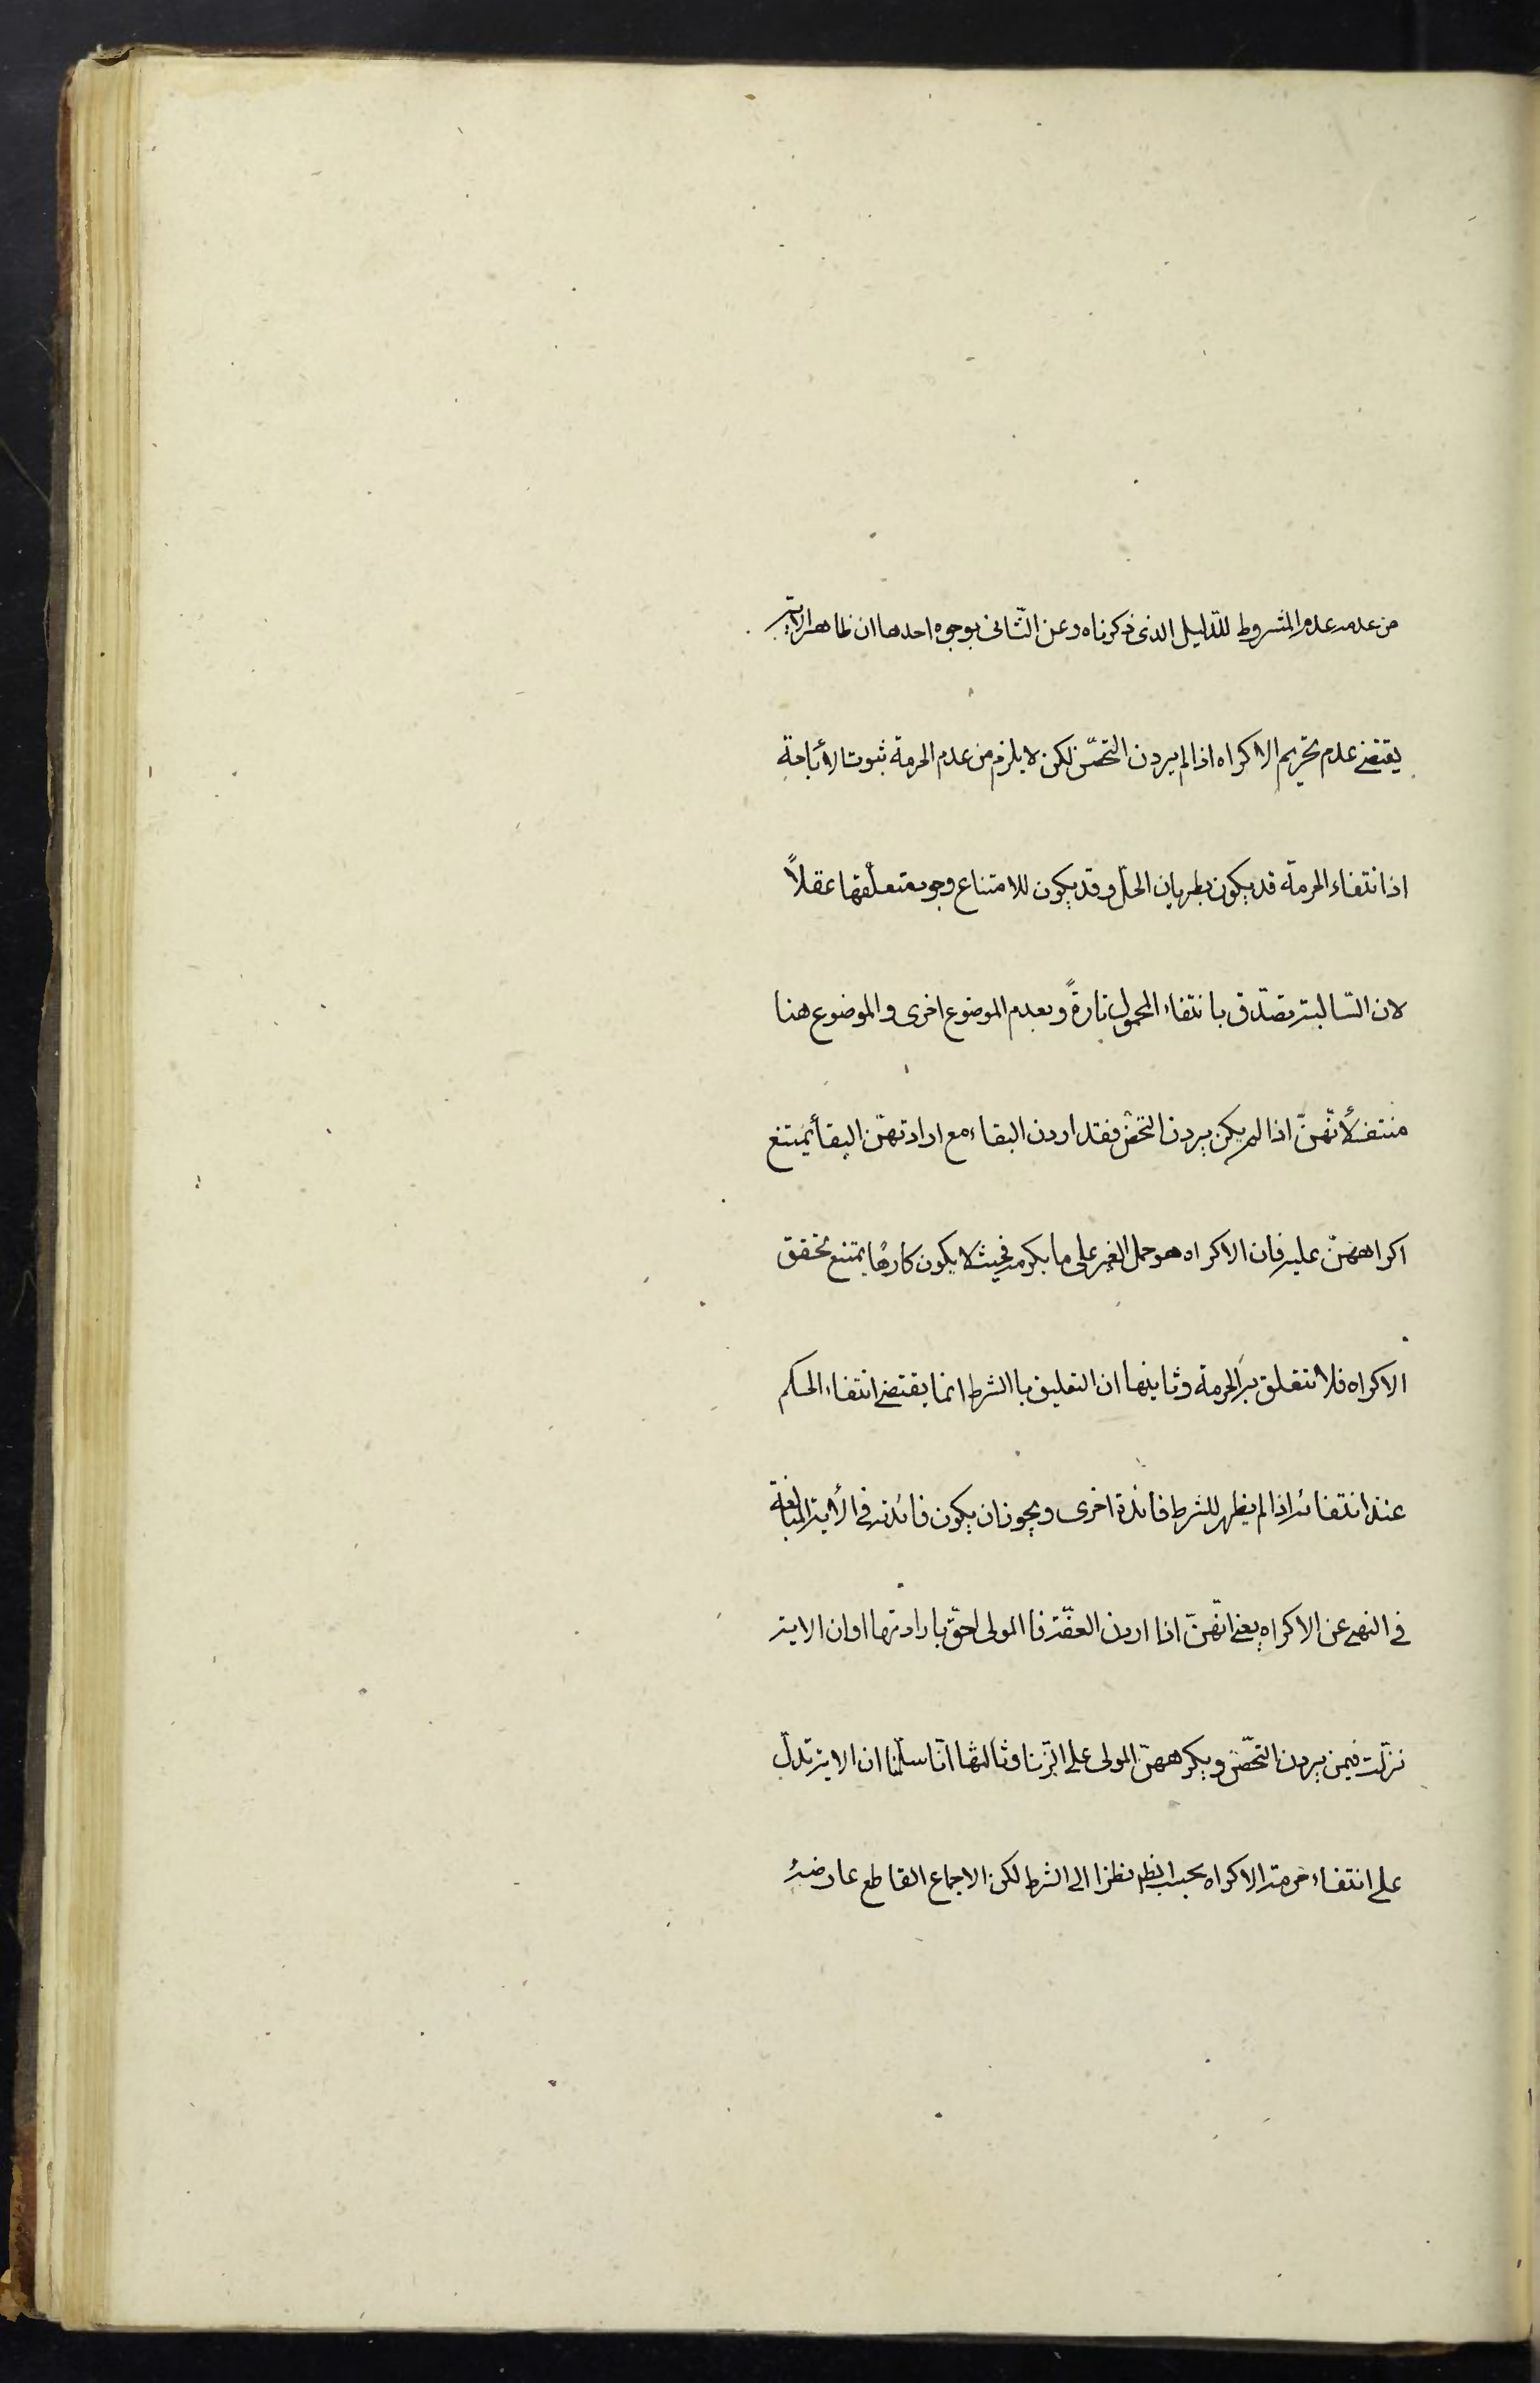 من عدمه عدم المشروط للدّليل الذى ذكرناه وعن الثّانى بوجوه احدها ان ظاهر الاية
يقتضى عدم تحريم الاكراه اذا لم يردن التحصّن لكن لا يلزم من عدم الحرمة ثبوت الأباحة
اذ انتفاء الحرمة قد يكون بطريان الحلّ وقد يكون للامتناع وجود متعلّقها عقلاً
لان السّالبة تصدّق بانتفاء المحمول تارةً وبعدم الموضوع اخرى والموضوع هنا
منتف لأنّهنّ اذا لم يكن يردن التحصّن فقد اردن البغاء مع ارادتهنّ البغأ يمتنع
اكراههنّ عليه فان الاكراه هو حمل الغير على ما يكرهه فحيث لا يكون كارهًا يمتنع تحقق
الاكراه فلا تتعلق به الحرمة وثانيها ان التعليق با الشرط انما يقتضى انتفاء الحكم
عند انتفائه اذا لم يظهر للشرط فائدة اخرى ويجوز ان يكون فائدته فى الأية المبالغة
فى النهى عن الاكراه يعنى انّهنّ اذا اردن العفّة فا المولى احقّ بارادتها او ان الاية
نزلت فيمن يردن التحصّن ويكرههنّ المولى على الزّنا وثالثها انّا سلّمنا ان الاية تدلّ
على انتفاء حرمة الاكراه بحسب الظم نظرا الى الشرط لكن الاجماع القاطع عارضه